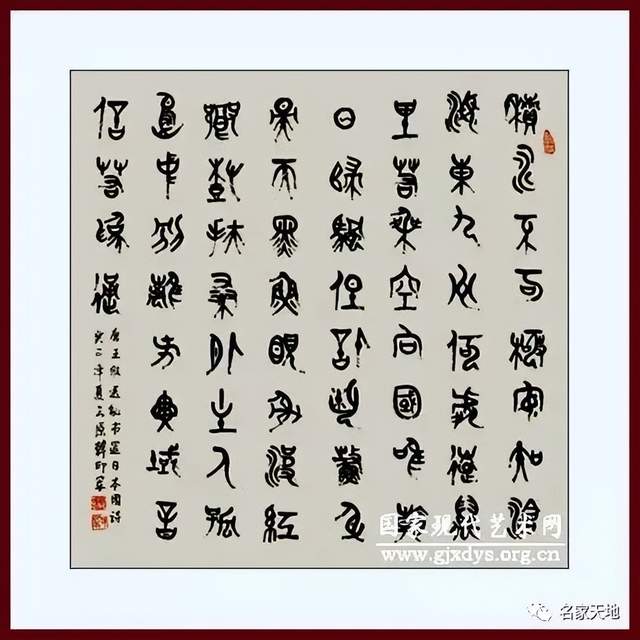 積水不可極安知滄
海東九州何處遠萬
里若乘空向國唯看
日歸帆但信風鰲身
映天黑魚眼射波紅
鄉樹扶桑外主人孤
島中別離方異域音
信若為通
唐王維送秘書還日本國詩
年夏三原韓印
国家现代艺术网
www.gjxdys.org.cn
名家天地